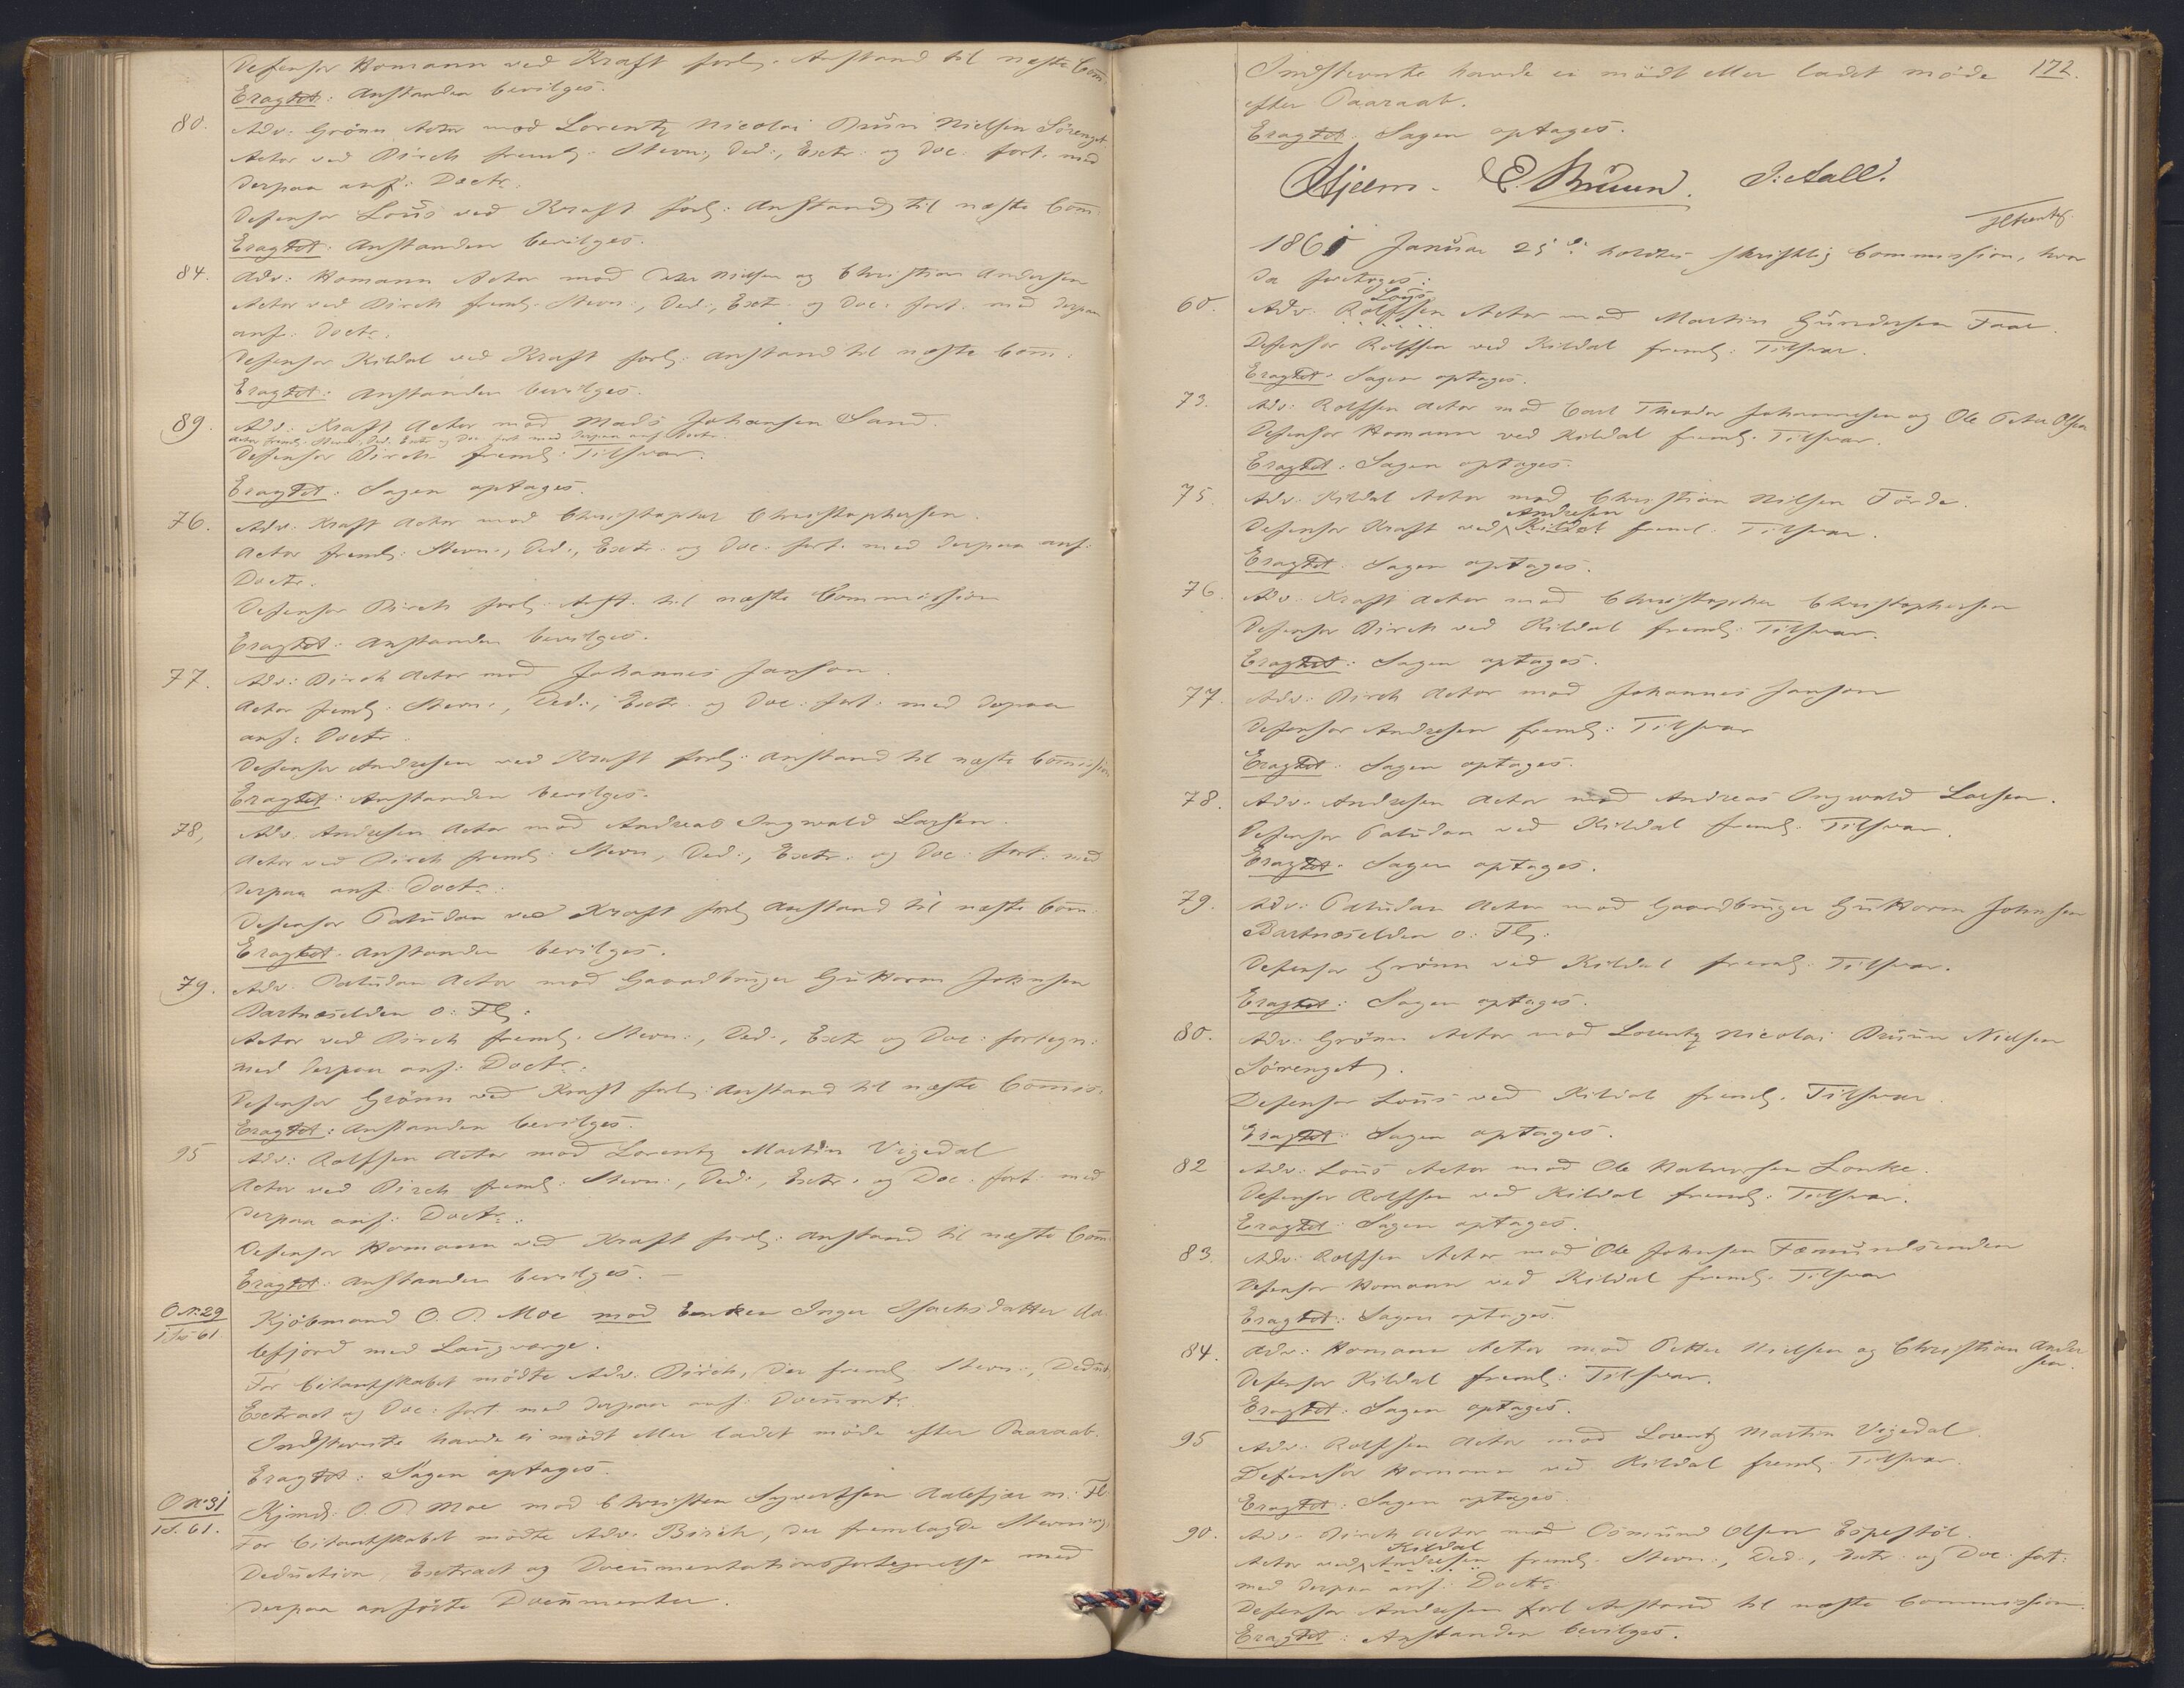 Defensor Homann ved Kraft forlg. Anstand til næste Com̅
Eragtet: Anstanden bevilges.
80. Adv: Grönn Actor mod Lorentz Nicolai Bruun Nielsen Sörenget
Actor ved Birch fremlg. Stevn:, Ded:, Extr: og Doc. fort. med
derpaa anf: Doctr.
Defensor Lous ved Kraft forlg: Anstand til næste Com̅
Eragtet: Anstanden bevilges.
84. Adv: Homann Actor mod Peter Nielsen og Christian Andersen
Actor ved Birch fremlg. Stevn:, Ded:, Extr. og Doc. fort. med derpaa
anf: Doctr.
Defensor Kildal ved Kraft forlg: Anstand til næste Com̅:
Eragtet: Anstanden bevilges.
89. Adv: Kraft Actor mod Mads Johansen Sand.
Actor fremlg: Stevn:, Ded. Extr og Doc fort med derpaa anf Doctr.
Defensor Birch fremlg: Tilsvar.
Eragtet: Sagen optages.
76. Adv: Kraft Actor mod Christopher Christophersen.
Actor fremlg: Stevn:, Ded:, Extr. og Doc. fort. med derpaa anf:
Doctr.
Defensor Birch forlg. Anst. til næste Commission
Eragtet: Anstanden bevilges.
77. Adv: Birch Actor mod Johannes Janson.
Actor fremlg: Stevn:, Ded:, Extr. og Doc: fort: med derpaa
anf: Doctr.
Defensor Andresen ved Kraft forlg: Anstand til næste Com̅ission
Eragtet: Anstanden bevilges.
78, Adv. Andresen Actor mod Andreas Ingwald Larsen.
Actor ved Birch fremlg: Stevn, Ded:, Extr. og Doc: fort: med
derpaa anf: Doctr:
Defensor Paludan ved Kraft forlg Anstand til næste Com̅:
Eragtet. Anstanden bevilges.
79. Adv. Paludan Actor mod Gaardbruger Guttorm Johnsen
Bartnæselden o: Fl:
Actor ved Birch fremlg. Stevn:, Ded., Extr og Doc: fortegn:
med derpaa anf: Doctr:
Defensor Grönn ved Kraft forlg: Anstand til næste Com̅is.
Eragtet: Anstanden bevilges.
95 Adv: Rolfsen Actor mod Lorentz Martin Vigedal
Actor ved Birch fremlg: Stevn:, Ded:, Extr: og Doc. fort med
derpaa anf: Doctr:
Defensor Homann ved Kraft forlg: Anstand til næste Com̅
Eragtet: Anstanden bevilges. —
O No: 29 Kjöbmand O. P. Moe mod Enken Inger Isachsdatter Aa
1 S 61 lefjord med Laugværge.
For Citantskabet mödte Adv. Birch, der fremlg Stevn:, Deduct,
Extract og Doc: fort med derpaa anf: Documtr.
Indstevnte havde ei mödt eller ladet möde efter Paaraab.
Eragtet: Sagen optages.
O No 31 Kjmd: O. P. Moe mod Christen Syvertsen Aalefjær m: Fl.
1 S. 61. For Citantskabet mödte Adv: Birch, der fremlagde Stevning,
Deduction, Extract og Documentationsfortegnelse med
derpaa anförte Documenter.
Indstevnte havde ei mödt eller ladet möde 172.
efter Paaraab.
Eragtet. Sagen optages.
Hjelm. E. Bruun. J: Aall.
1861 Januar 25de holdtes skriftlig Commission, hvor
da foretoges:
Lous
60. Adv. Rolfsen Actor mod Martin Gundersen Foae.
Defensor Rolfsen ved Kildal fremlg: Tilsvar.
Eragtet: Sagen optages.
73. Adv: Rolfsen Actor mod Carl Theodor Johannesen og Ole Peter Olsen
Defensor Homann ved Kildal fremlg. Tilsvar.
Eragtet: Sagen optages.
75. Adv. Kildal Actor mod Christian Nilsen Förde.
Andresen
Defensor Kraft ved Kildal freml: Tilsvar.
Eragtet: Sagen optages.
76. Adv. Kraft Actor mod Christopher Christophersen
Defensor Birch ved Kildal fremlg: Tilsvar.
Eragtet: Sagen optages.
77. Adv: Birch Actor mod Johannes Janson
Defensor Andresen fremlg: Tilsvar
Eragtet: Sagen optages.
78. Adv. Andresen Actor mod Andreas Ingwald Larsen.
Defensor Paludan ved Kildal fremlg. Tilsvar.
Eragtet. Sagen optages.
79. Adv: Paludan Actor mod Gaardbruger Guttorm Johnsen
Bartnæselden o: Fl:
Defensor Grönn ved Kildal fremlg. Tilsvar.
Eragtet: Sagen optages.
80. Adv. Grönn Actor mod Lorentz Nicolai Bruun Nielsen
Sörenget.
Defensor Lous ved Kildal fremlg. Tilsvar.
Eragtet: Sagen optages.
82 Adv: Lous Actor mod Ole Halvorsen Lonke.
Defensor Rolfsen ved Kildal fremlg: Tilsvar.
Eragtet: Sagen optages.
83. Adv. Rolfsen Actor mod Ole Johnsen Fæmundsenden
Defensor Homann ved Kildal fremlg. Tilsvar
Eragtet: Sagen optages.
84. Adv: Homann Actor mod Petter Nielsen og Christian Ander
sen.
Defensor Kildal fremlg: Tilsvar.
Eragtet: Sagen optages.
95 Adv. Rolfsen Actor mod Lorentz Martin Vigedal
Defensor Homann ved Kildal fremlg. Tilsvar.
Eragtet: Sagen optages.
90. Adv. Birch Actor mod Osmund Olsen Espestöl.
Kildal
Actor ved Andresen fremlg. Stevn:, Ded., Extr. og Doc. fort:
med derpaa anf: Doctr:
Defensor Andresen forl Anstand til næste Commission.
Eragtet: Anstanden bevilges.